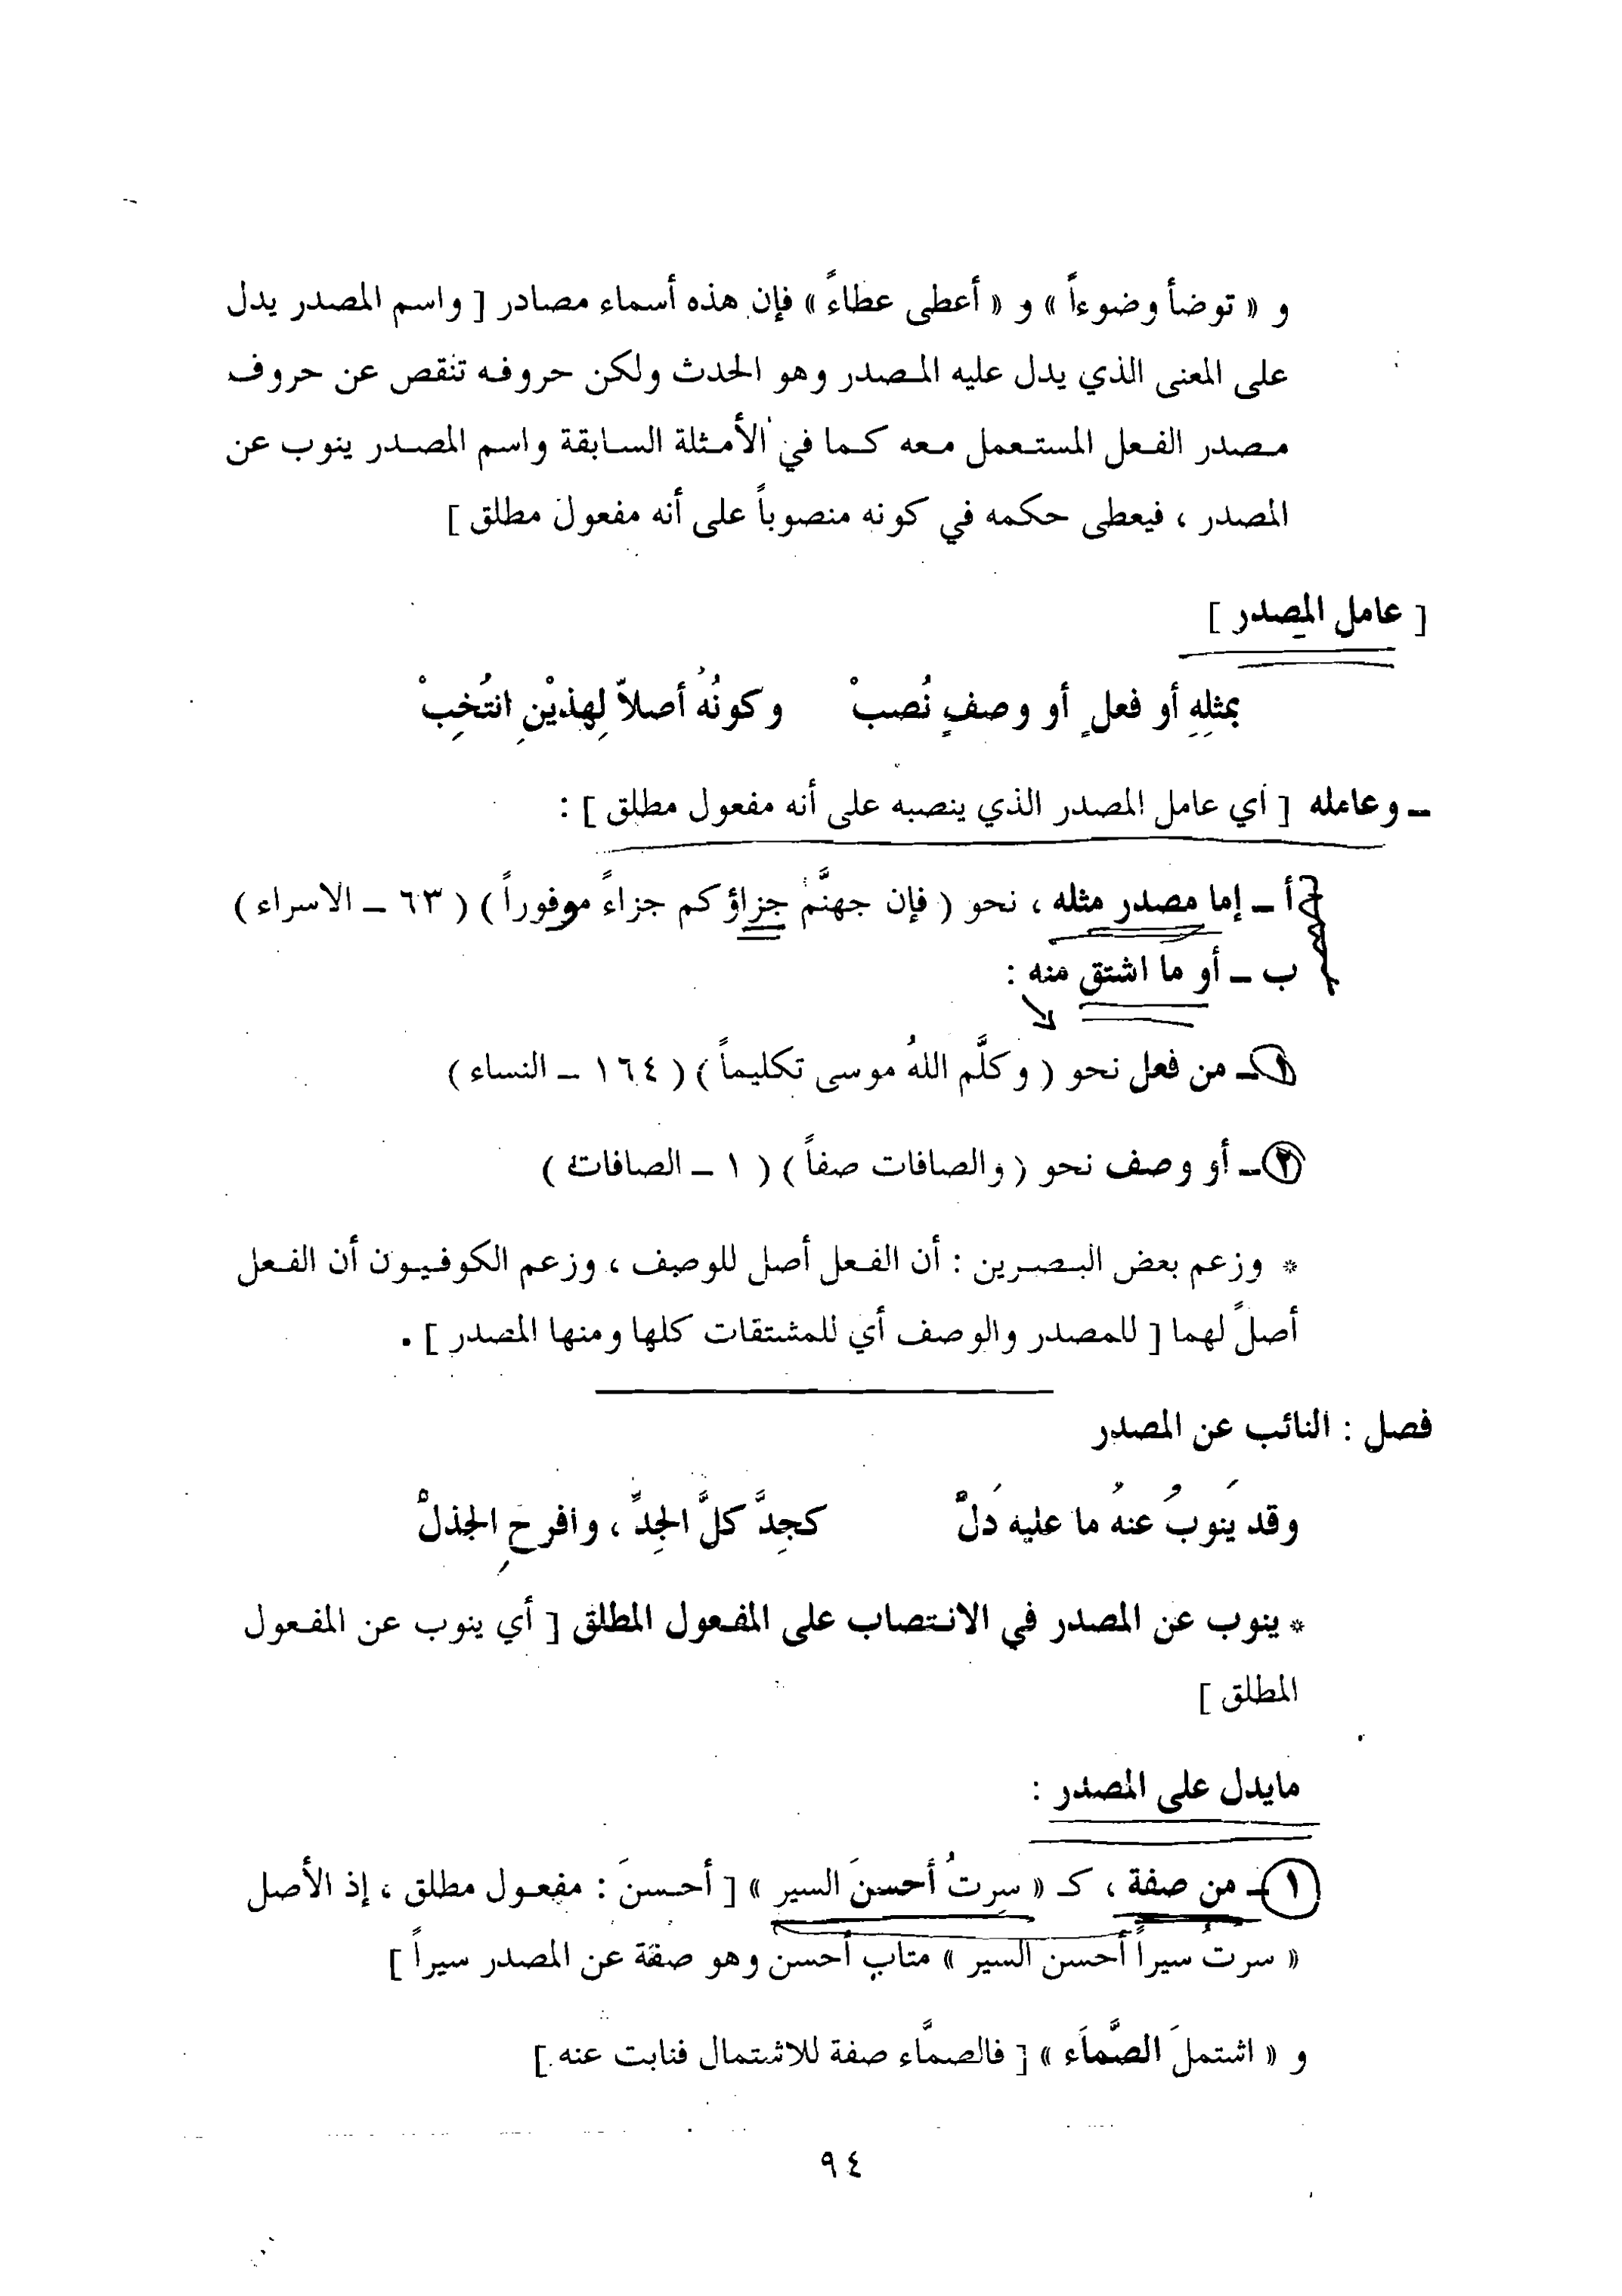 و « توضأ وضوءاً » و « أعطى عطاءً » فإن هذه أسماء مصادر [ واسم المصدر يدل
على المعنى الذي يدل عليه المصدر وهو الحدث ولكن حروفه تنقص عن حروف
مصدر الفعل المستعمل معه كما في الأمثلة السابقة واسم المصدر ينوب عن
المصدر ، فيعطى حكمه في كونه منصوباً على أنه مفعول مطلق ]
[ عامل المصدر ]
بمثلِهِ أو فعلٍ أو وصفٍ نُصبْ وكونُهُ أصلاً لِهذيْنِ انتُخِبْ
ـ وعامله [ أي عامل المصدر الذي ينصبه على أنه مفعول مطلق ] :
أ ـ إما مصدر مثله ، نحو ( فإن جهنَّمَ جزاؤكم جزاءً موفوراً ) ( ٦٣ ـ الاسراء )
ب ـ أو ما اشتق منه :
١ ـ من فعل نحو ( وكلَّم اللهُ موسى تكليماً ) ( ١٦٤ ـ النساء )
٢ ـ أو وصف نحو ( والصافات صفاً ) ( ١ ـ الصافات )
* وزعم بعض البصرين : أن الفعل أصل للوصف ، وزعم الكوفيون أن الفعل
أصلً لهما [ للمصدر والوصف أي للمشتقات كلها ومنها المصدر ] .
فصل : النائب عن المصدر
وقد يَنوبُ عنهُ ما عليه دَلّْ كجِدَّ كلَّ الجِدِّ ، وافرحِ الجذلْ
* ينوب عن المصدر في الانتصاب على المفعول المطلق [ أي ينوب عن المفعول
المطلق ]
مايدل على المصدر :
١ ـ من صفة ، كـ « سرتُ أحسنَ السير » [ أحسنَ : مفعول مطلق ، إذ الأصل
« سرتُ سيراً أحسن السير » متاب أحسن وهو صفة عن المصدر سيراً ]
و « اشتملَ الصَّماَء » [ فالصمَّاء صفة للاشتمال فنابت عنه ]
٩٤